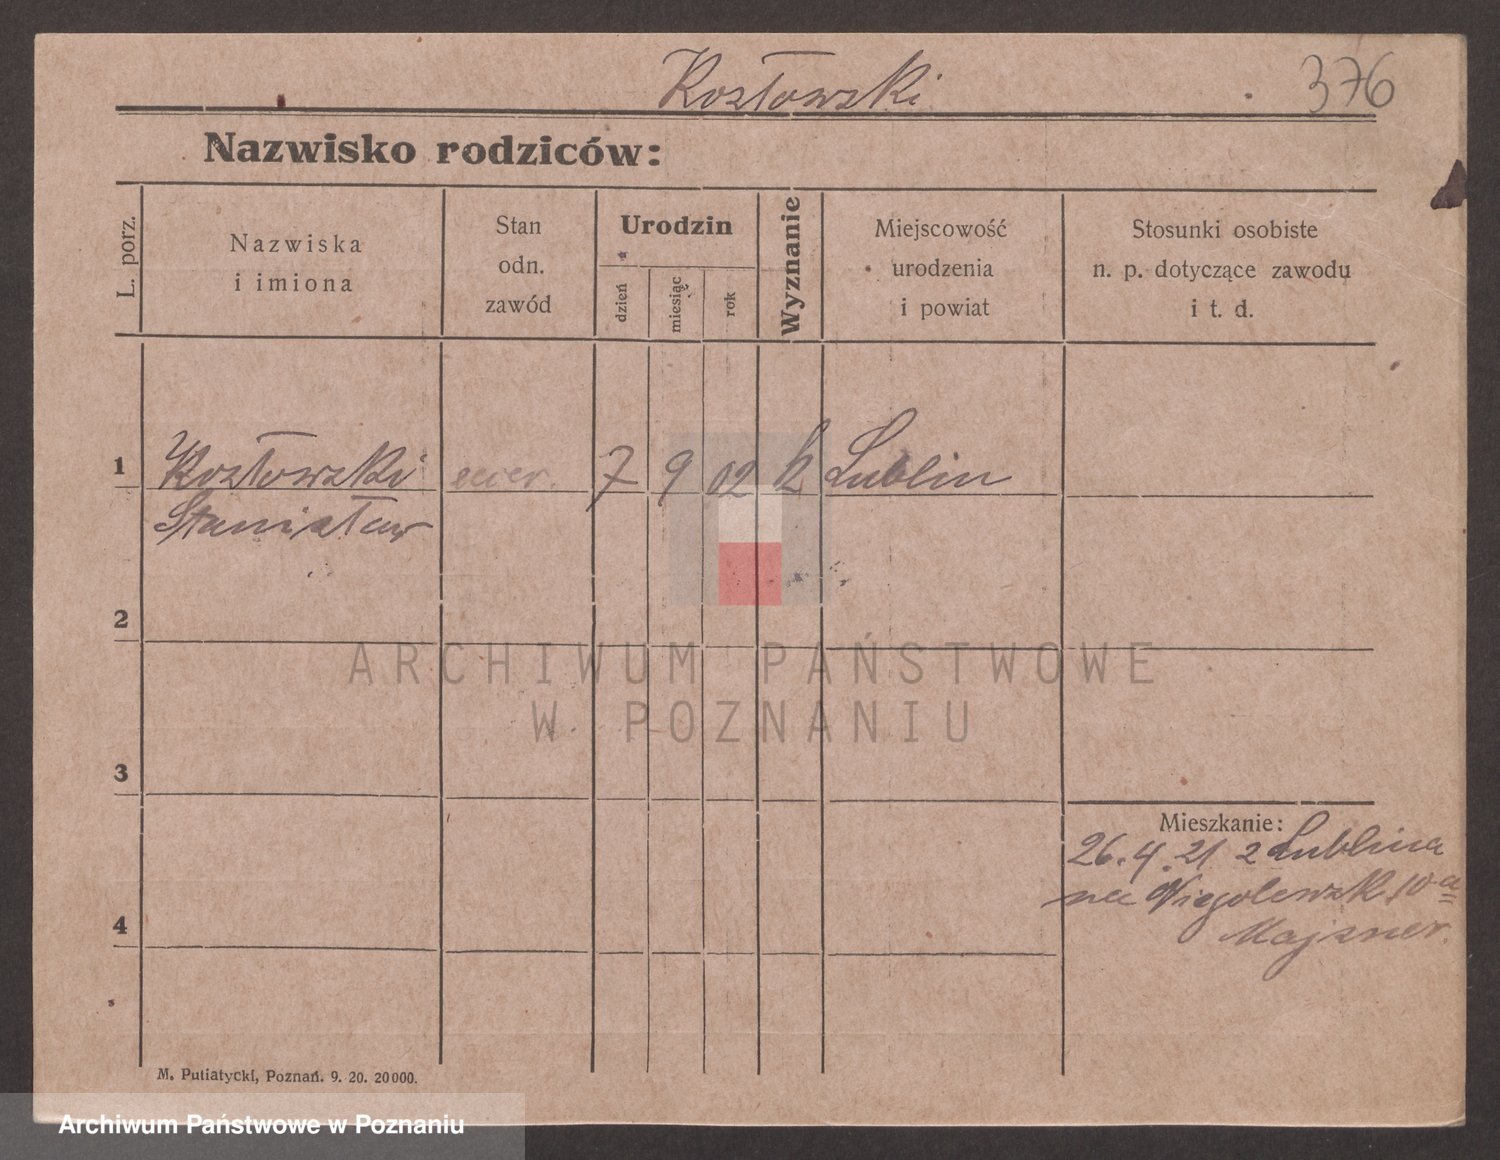 Kozłowski
376
Nazwisko rodziców:
L. porz.
Nazwiska
i imiona
Stan
odn.
zawód
Urodzin
dzień
miesiąc
rok
Wyznanie
Miejscowość
urodzenia
i powiat
Stosunki osobiste
n. p. dotyczące zawodu
i t. d.
1
Kozłowski
7
9
02
k
Lublin
Stanisław
2
ARCHIWUM PAŃSTWOWE
W POZNANIU
3
Mieszkanie:
26.4.21 z Lublina
na 10a
Majzner
4
M. Putiatycki, Poznań. 9. 20. 20000.
Archiwum Państwowe w Poznaniu